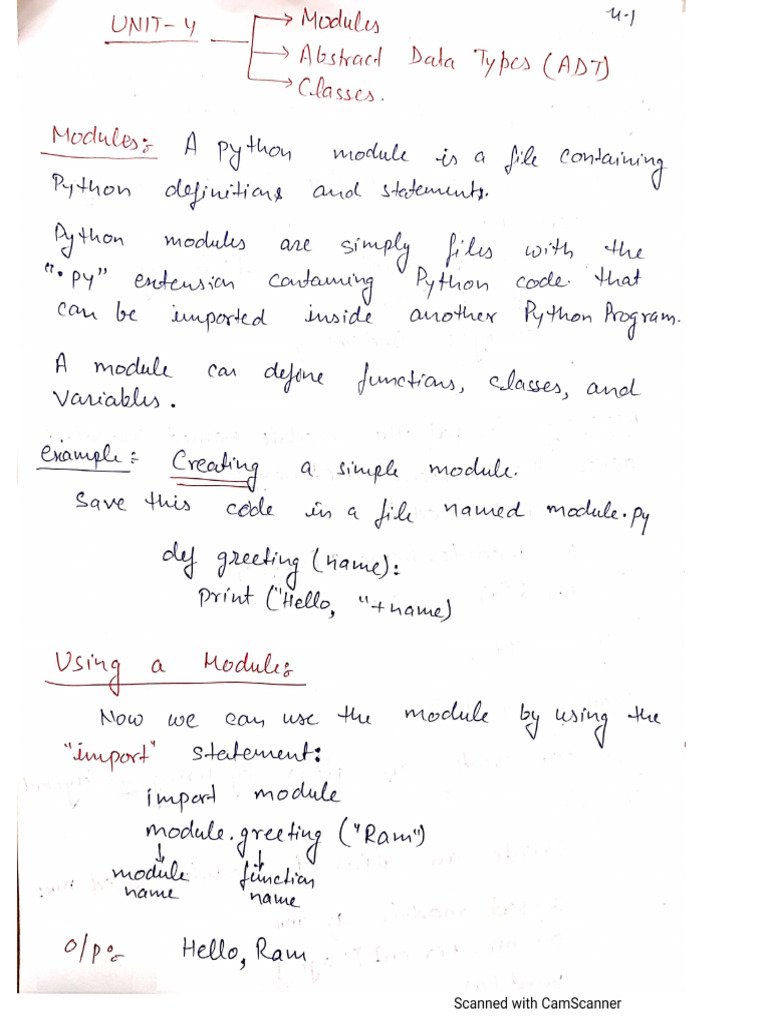 UNIT-4 → Modules
4.1
→ Abstract Data Types (ADT)
→ Classes.
Modules:- A python module is a file containing
Python definitions and statements.
Python modules are simply files with the
".py" extension containing Python code that
can be imported inside another Python Program.
A module can define functions, classes, and
variables.
Example:- Creating a simple module.
Save this code in a file named module.py
def greeting (name):
print ("Hello, "+name)
Using a Module:
Now we can use the module by using the
"import" statement:
import module
module.greeting ("Ram")
↓ ↓
module function
name name
O/P:- Hello, Ram
Scanned with CamScanner